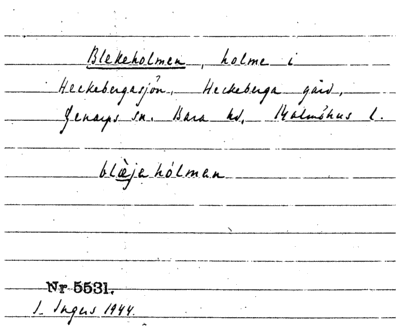 Blekeholmen, holme i
Heckebergasjön, Heckeberga gård,
Genarps sn. Bara hd, Malmöhus l.
blæjahólman
Nr 5531.
I. Ingers 1944.